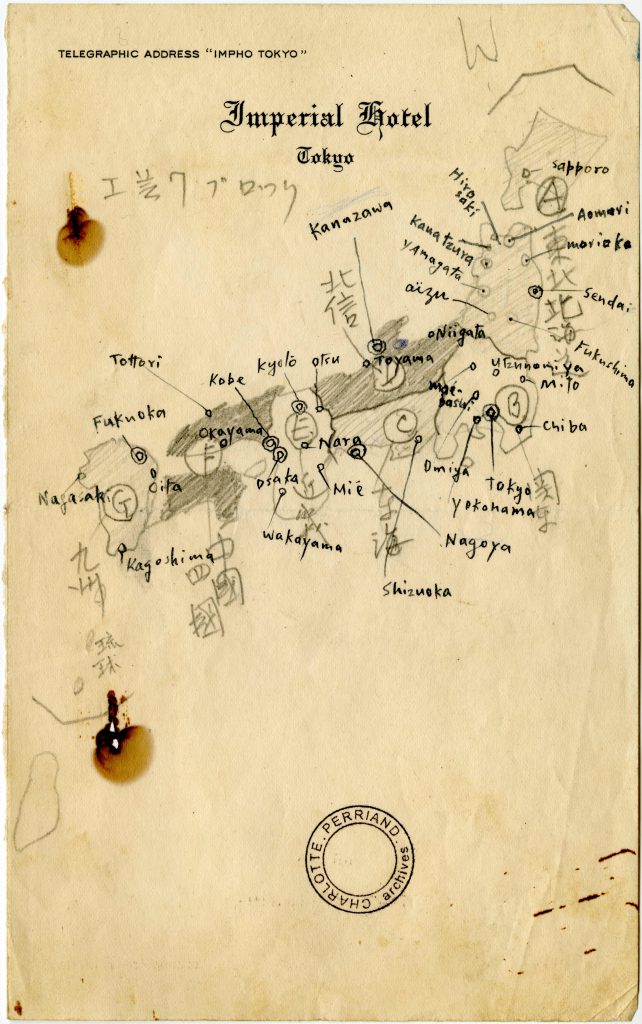 TELEGRAPHIC ADDRESS "IMPHO TOKYO"
W
Imperial Hotel
Tokyo
工芸7ブロック
Sapporo
A
Hiro
saki
Aomori
Kanatzura
morioka
Kanazawa
Yamagata
東北北海道
Sendai
北信
aïzu
Niigata
Fukushima
Toyama
D
Utennomiya
Mito
Tottori
Kobe
Kyoto
otsu
mae-
bashi
B
Fukuoka
Okayama
E
C
Chiba
F
Nara
Omiya
Tokyo
関東
Nagasaki
Oita
Osaka
Mié
Yokohama
G
近畿
東海
Wakayama
Nagoya
Kagoshima
中國
四國
Shizuoka
九州
琉球
CHARLOTTE. PERRIAND. archives